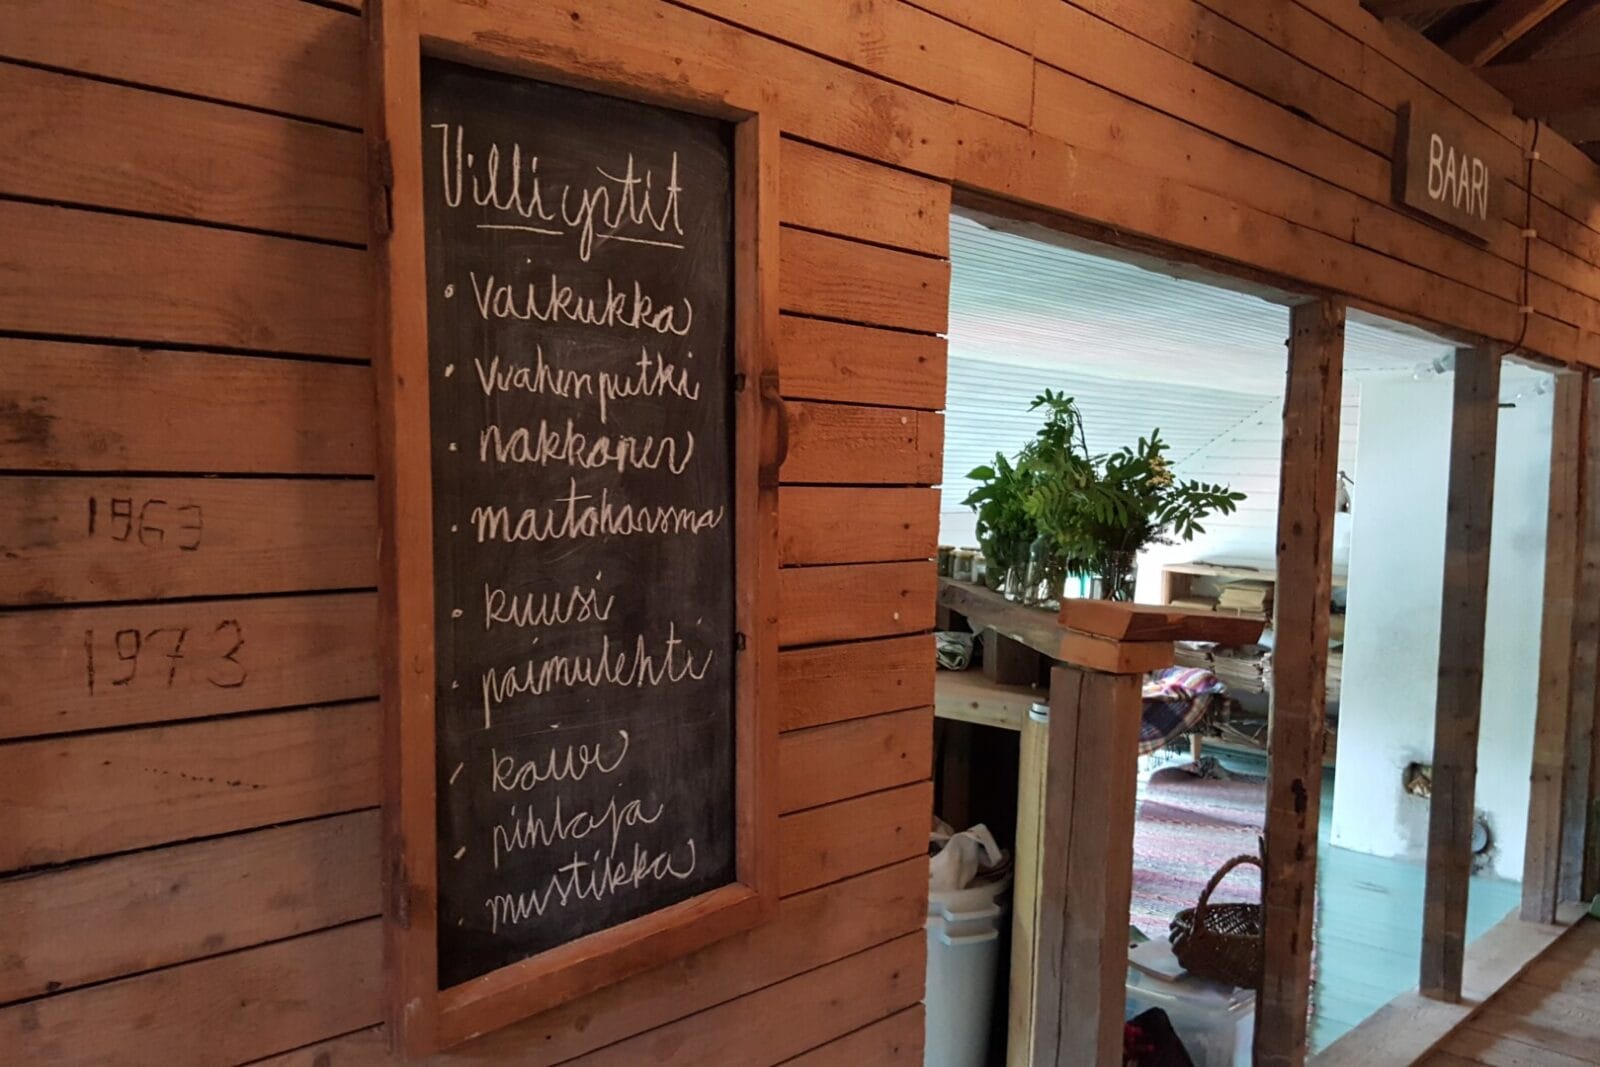 Villiyrtit
• vaikukka
• vuohenputki
• nokkonen
• maitohorsma
• kuusi
• poimulehti
• koivu
• pihlaja
• mustikka
1963
1973
BAARI